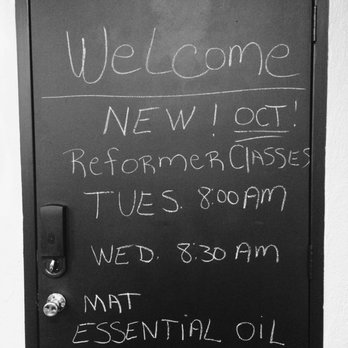 Welcome
NEW! OCT!
Reformer Classes
TUES. 8:00 AM
WED. 8:30 AM
MAT
ESSENTIAL OIL